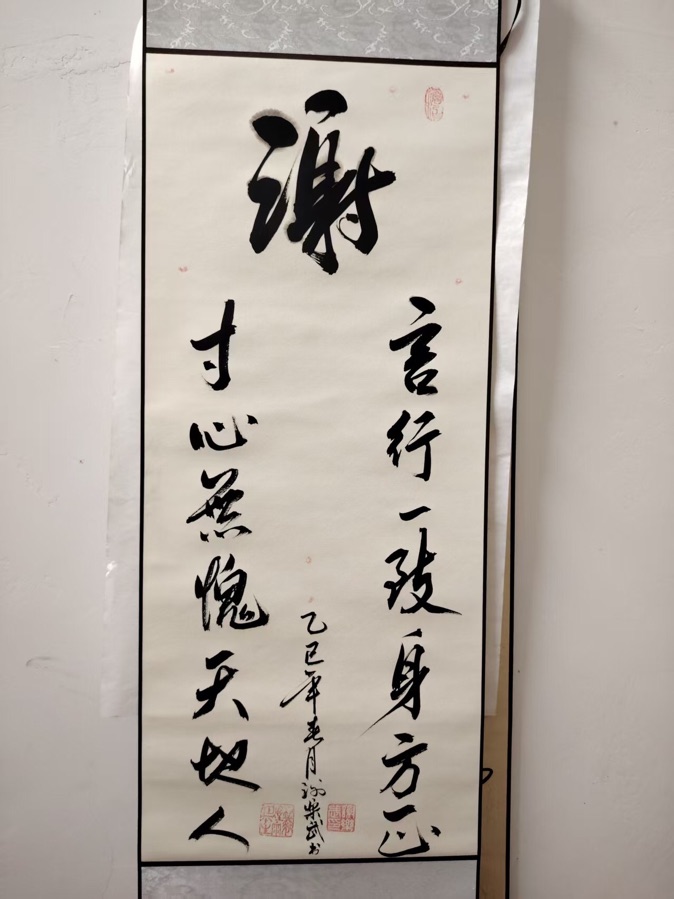 谢
言行一致身方正
寸心無愧天地人
乙巳年春月谢柴武书